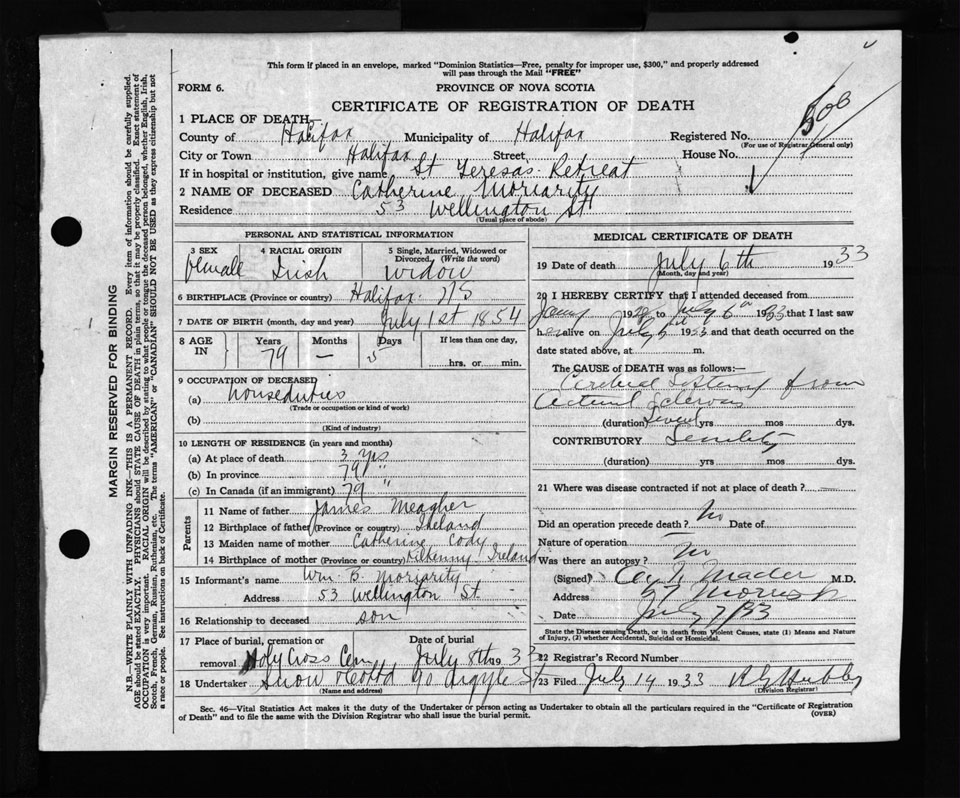 This form if placed in an envelope, marked "Dominion Statistics—Free, penalty for improper use, $300," and properly addressed
will pass through the Mail "FREE"
FORM 6.
PROVINCE OF NOVA SCOTIA
CERTIFICATE OF REGISTRATION OF DEATH
1 PLACE OF DEATH—
County of Halifax Municipality of Halifax Registered No.
(For use of Registrar General only)
City or Town Halifax Street House No.
If in hospital or institution, give name St Teresas Retreat
2 NAME OF DECEASED Catherine Moriarity
Residence 53 Wellington St
(Usual place of abode)
PERSONAL AND STATISTICAL INFORMATION
3 SEX Female
4 RACIAL ORIGIN Irish
5 Single, Married, Widowed or Divorced. (Write the word) Widow
6 BIRTHPLACE (Province or country) Halifax NS
7 DATE OF BIRTH (month, day and year) July 1st 1854
8 AGE IN Years 79 Months — Days 5 If less than one day, hrs. or min.
9 OCCUPATION OF DECEASED
(a) Houseduties
(Trade or occupation or kind of work)
(b)
(Kind of industry)
10 LENGTH OF RESIDENCE (in years and months)
(a) At place of death 3 Yrs
(b) In province 79 "
(c) In Canada (if an immigrant) 79 "
Parents
11 Name of father James Meagher
12 Birthplace of father (Province or country) Ireland
13 Maiden name of mother Catherine Cody
14 Birthplace of mother (Province or country) Kilkenny Ireland
15 Informant's name Wm. B. Moriarity
Address 53 Wellington St.
16 Relationship to deceased son
17 Place of burial, cremation or removal Holy Cross Cem Date of burial July 8th 1933
18 Undertaker Snow & Co Ltd 90 Argyle St
(Name and address)
MEDICAL CERTIFICATE OF DEATH
19 Date of death July 6th 1933
(Month, day and year)
20 I HEREBY CERTIFY that I attended deceased from
to July 6th 1933 that I last saw
h er alive on July 6th 1933 and that death occurred on the
date stated above, at m.
The CAUSE of DEATH was as follows:—
Cerebral from
Arterial Sclerosis
(duration) Several yrs mos dys.
CONTRIBUTORY Senility
(duration) yrs mos dys.
21 Where was disease contracted if not at place of death?
Did an operation precede death? No Date of
Nature of operation
Was there an autopsy? No
(Signed) Mader M.D.
Address 57 Morris St
Date July 7/33
State the Disease causing Death, or in death from Violent Causes, state (1) Means and Nature of Injury, (2) whether Accidental, Suicidal or Homicidal.
22 Registrar's Record Number
23 Filed July 14 1933
(Division Registrar)
Sec. 46—Vital Statistics Act makes it the duty of the Undertaker or person acting as Undertaker to obtain all the particulars required in the "Certificate of Registration
of Death" and to file the same with the Division Registrar who shall issue the burial permit.
(OVER)
MARGIN RESERVED FOR BINDING
N.B.—WRITE PLAINLY WITH UNFADING INK—THIS IS A PERMANENT RECORD. Every item of information should be carefully supplied.
AGE should be stated EXACTLY. PHYSICIANS should STATE CAUSE OF DEATH in plain terms, so that it may be properly classified. Exact statement of
OCCUPATION is very important. RACIAL ORIGIN will be described by stating to what people or tongue the deceased person belonged, whether English, Irish,
Scotch, French, German, Russian, Ruthenian, etc. The terms "AMERICAN" or "CANADIAN" SHOULD NOT BE USED as they express citizenship but not
a race or people. See instructions on back of Certificate.